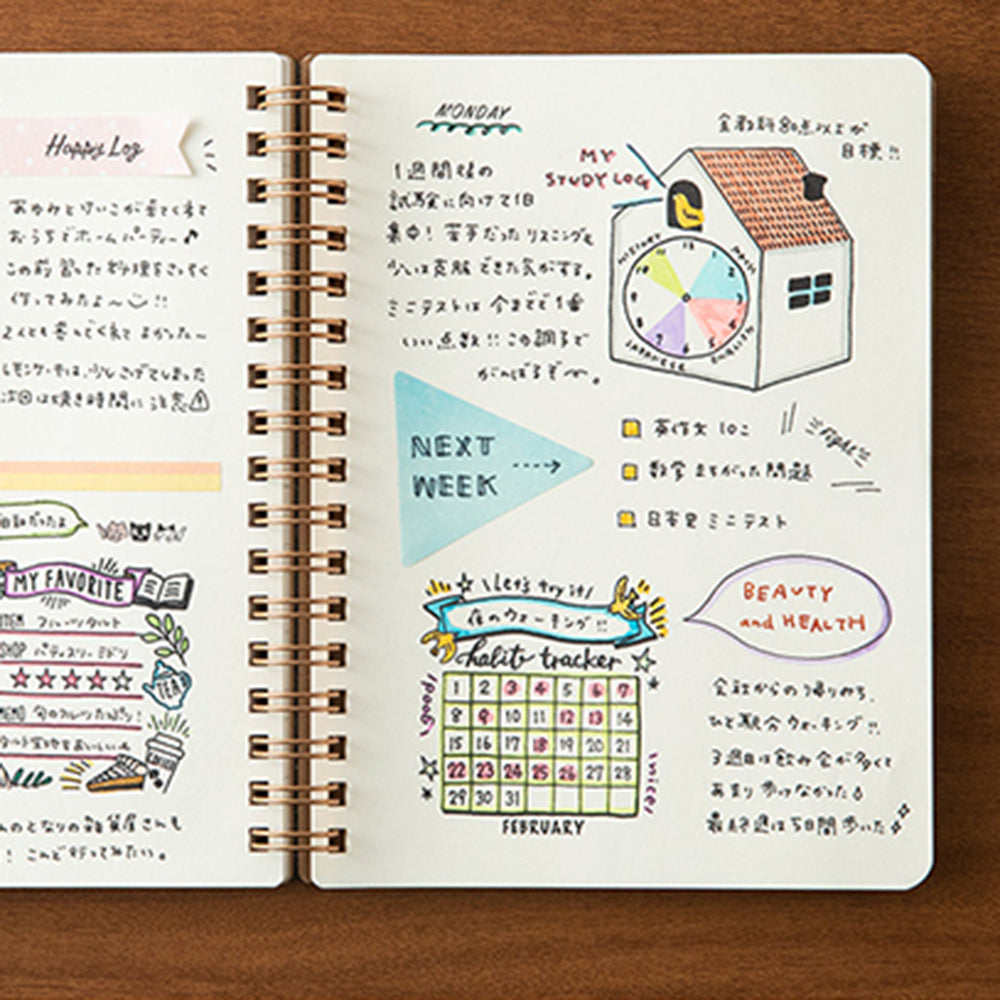 Happy Log
おうちでホームパーティー♪
この前習った料理をさっそく
作ってみたよ〜 !!
2人とも喜んでくれて よかった〜
レモンケーキは、少しこげてしまった
次回は焼き時間に注意
MY FAVORITE
ITEM フルーツタルト
SHOP パティスリーミドリ
MEMO 旬のフルーツたっぷり!
TEA
のとなりの雑貨屋さんも
! こんど行ってみたい。
MONDAY
1週間後の
試験に向けて1日
集中! 苦手だったリスニングも
少しは克服できた気がする。
ミニテストは今までで1番
いい点数!! この調子で
がんばるぞ〜。
MY
STUDY LOG
全教科80点以上が
目標!!
HISTORY
MATH
ENGLISH
JAPANESE
NEXT
WEEK
英作文 10こ
数学 まちがった問題
日本史 ミニテスト
Let's try it!
夜のウォーキング!!
habit tracker
good!
1 2 3 4 5 6 7
8 9 10 11 12 13 14
15 16 17 18 19 20 21
22 23 24 25 26 27 28
29 30 31
nice!
FEBRUARY
BEAUTY
and HEALTH
会社からの帰りみち、
ひと駅分ウォーキング!!
3週目は飲み会が多くて
あまり歩けなかった
最終週は5日間歩いた